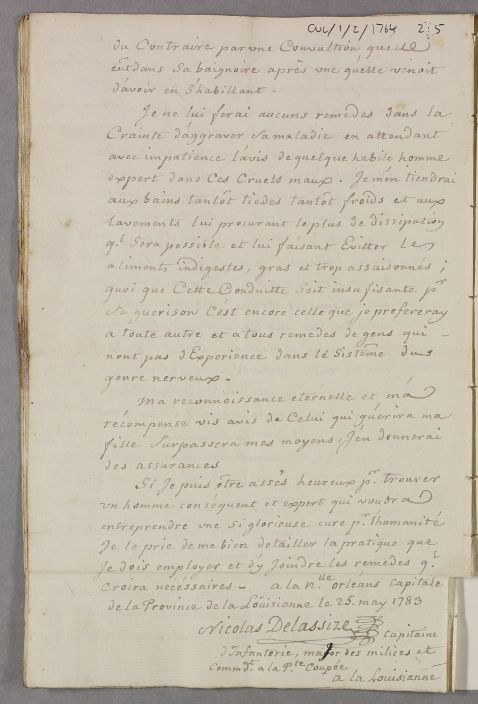 CUL/1/2/1764 2:5
du Contraire par une Convultion quelle
eût dans Sa baignoire après une quelle venoit
davoir en Shabillant.
Je ne lui ferai aucuns remèdes dans la
Crainte daggraver Sa maladie en attendant
avec impatience lavis de quelque habile homme
expert dans Ces Cruels maux. Je men tiendrai
aux bains tantôt tièdes tantôt froids et aux
lavements lui procurant le plus de dissipation
q.l Sera possible et lui faisant Evitter les
aliments indigestes, gras et trop assaisonnés;
quoi que Cette Conduitte Soit insufisante p.r
Sa guerison C'est encore celle que je prefereray
a toute autre et a tous remedes de gens qui
nont pas d'Experience dans le Sistême du
genre nerveux.
Ma reconnoissance eternelle et ma
récompense vis avis de Celui qui guérira ma
fille Surpassera mes moyens, J'en donnerai
des assurances
Si Je puis être assés heureux p.r trouver
un homme conséquent et expert qui voudra
entreprendre une Si glorieuse cure p.r lhumanité
Je le prie de me bien detailler la pratique que
Je dois employer et dy Joindre les remedes q.l
Croira nécessaires - a la N.lle orleans Capitale
de la Province de la Louisianne le 25. may 1783
Nicolas Delassize Capitaine
d'Infanterie, major des milices et
Comm.dt a la P.te Coupée
a la Louisianne